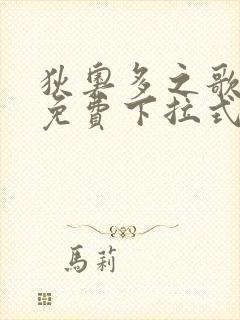 狄奧多之歌
免費下拉式
馬莉